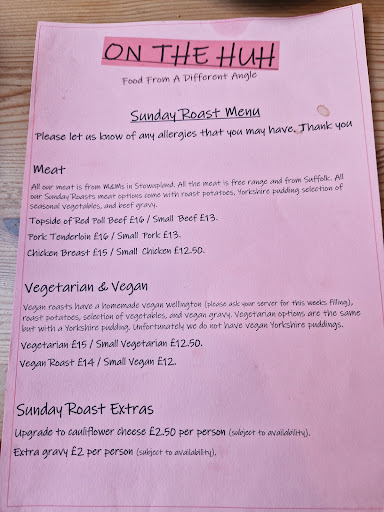 ON THE HUH
Food From A Different Angle
Sunday Roast Menu
Please let us know of any allergies that you may have. Thank you
Meat
All our meat is from M&Ms in Stowupland. All the meat is free range and from Suffolk. All
our Sunday Roasts meat options come with roast potatoes, Yorkshire pudding selection of
seasonal vegetables, and beef gravy.
Topside of Red Poll Beef £16 / Small Beef £13.
Pork Tenderloin £16 / Small Pork £13.
Chicken Breast £15 / Small Chicken £12.50.
Vegetarian & Vegan
Vegan roasts have a homemade vegan wellington (please ask your server for this weeks filling),
roast potatoes, selection of vegetables, and vegan gravy. Vegetarian options are the same
but with a Yorkshire pudding. Unfortunately we do not have vegan Yorkshire puddings.
Vegetarian £15 / Small Vegetarian £12.50.
Vegan Roast £14 / Small Vegan £12.
Sunday Roast Extras
Upgrade to cauliflower cheese £2.50 per person (subject to availability).
Extra gravy £2 per person (subject to availability).